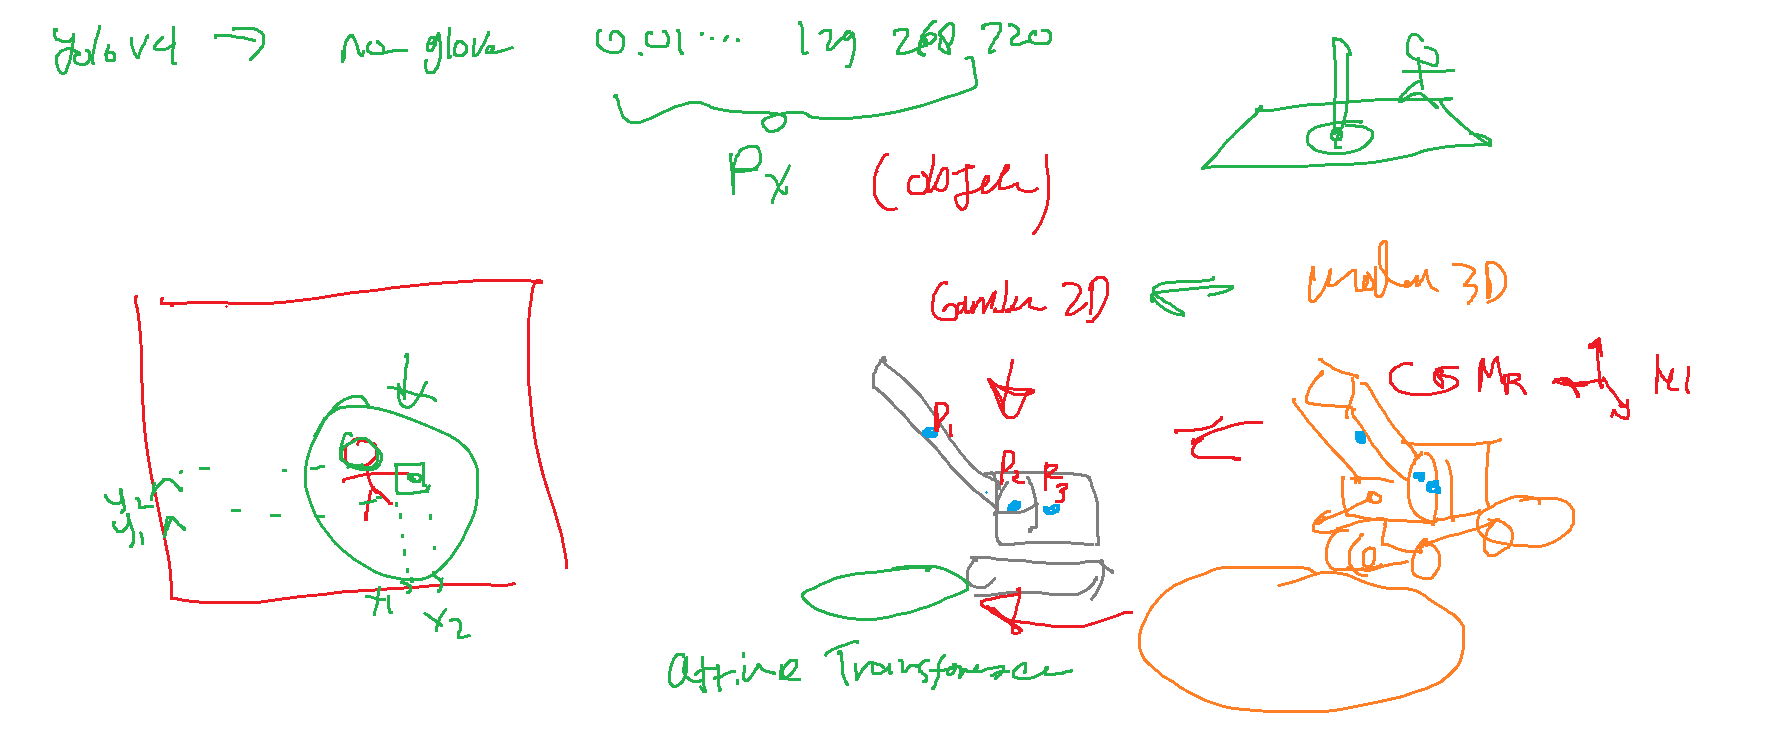 yolo v4 → no-glove 0.01.... 129 268 720
Px (objek)
Gambar 2D ← model 3D
MR
P1
P2 P3
y2
y1
x1
x2
affine Transformasi